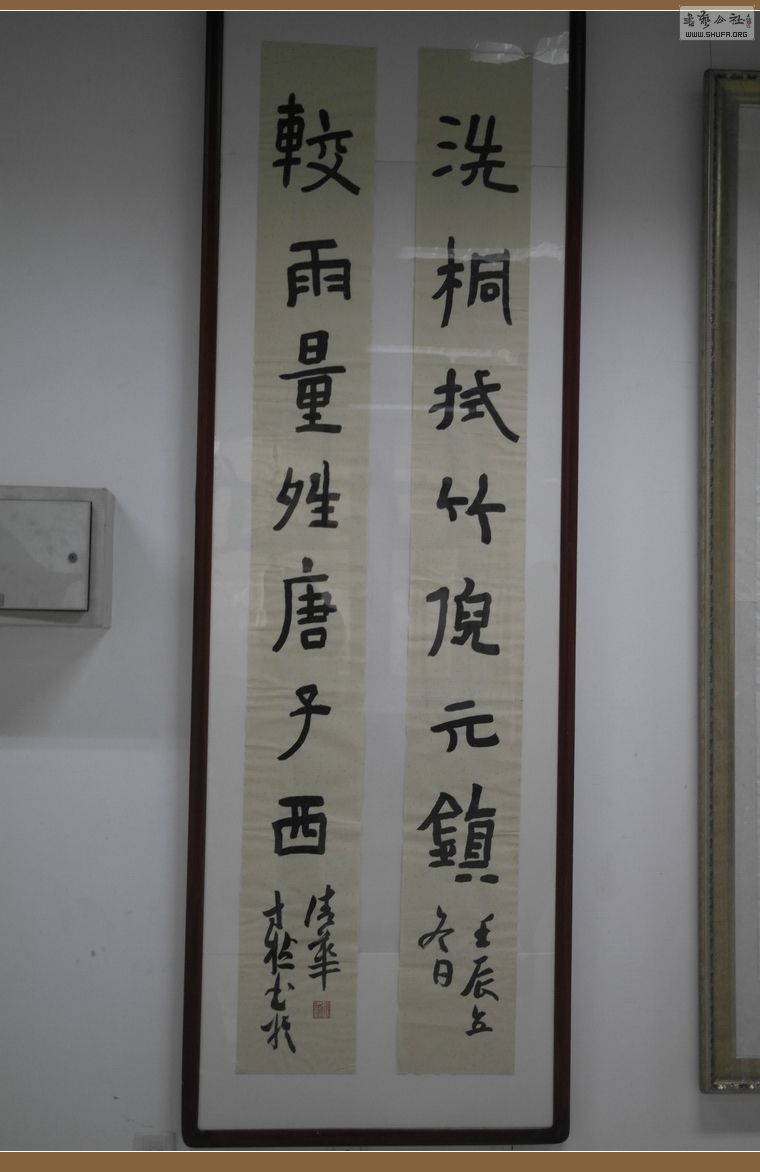 書藝公社
WWW.SHUFA.ORG
洗桐拭竹倪元鎮
壬辰立
冬日
較雨量夝唐子西
清華